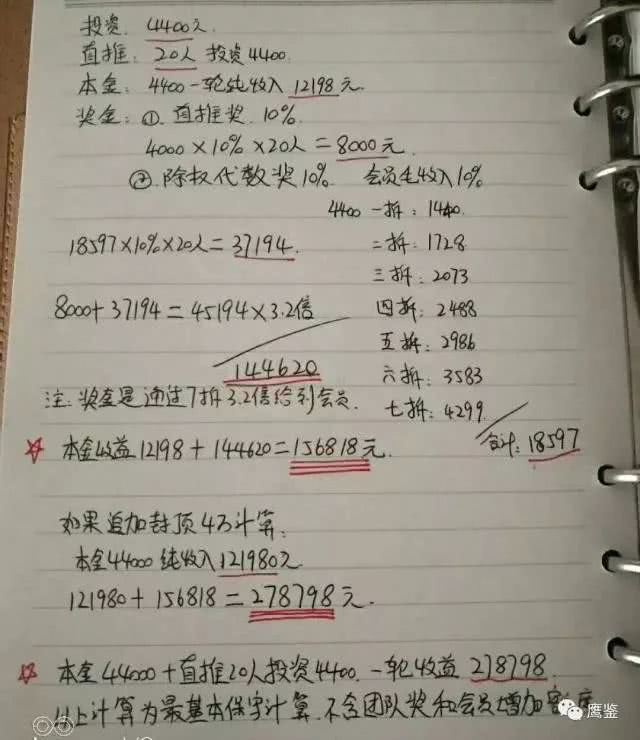 投资：4400元.
直推：20人 投资4400.
本金：4400 一轮纯收入 12198元.
奖金：①. 直推奖 10%.
4000×10%×20人＝8000元.
②.除权代数奖10%. 会员毛收入10%
4400 一拆：1440.
18597×10%×20人＝37194.
二拆：1728
三拆：2073
8000+37194＝45194×3.2倍
四拆：2488
五拆：2986
144620
六拆：3583
注：奖金是通过7拆3.2倍给到会员.
七拆：4299
合计：18597
☆ 本金收益12198+144620=156818元.
如果追加封顶4万计算：
本金44000 纯收入121980元
121980+156818＝278798元.
☆ 本金44000+直推20人投资4400.一轮收益 278798
以上计算为最基本保守计算.不含团队奖和会员增加
鹰鉴